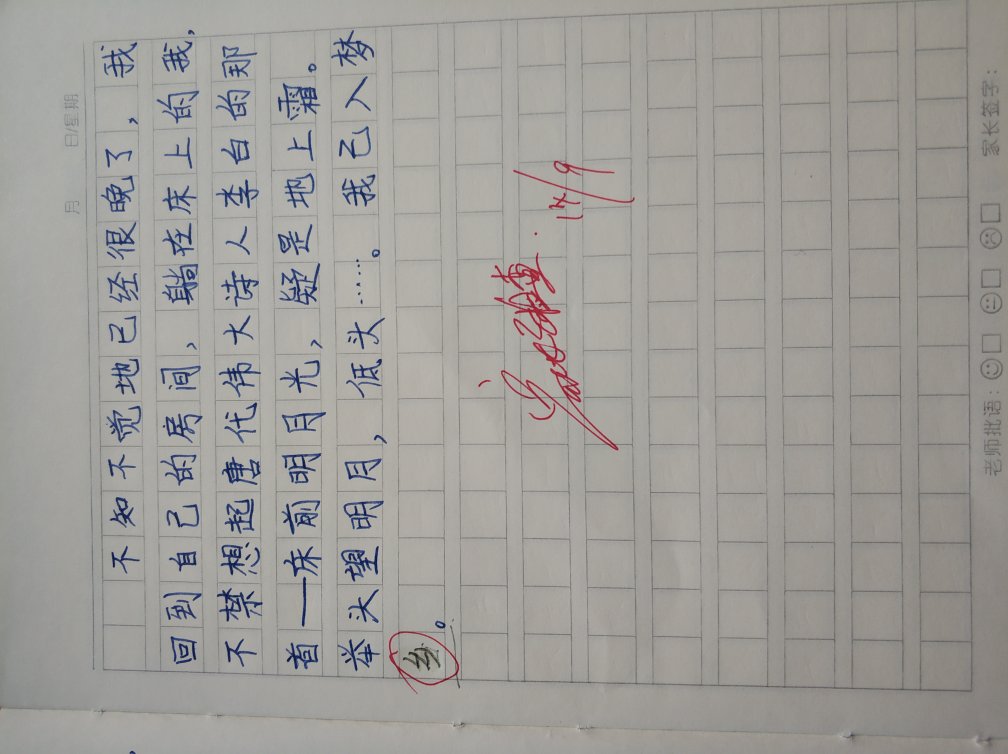 月 日/星期
不知不觉地已经很晚了，我
回到自己的房间，躺在床上的我，
不禁想起唐代伟大诗人李白的那
首——床前明月光，疑是地上霜。
举头望明月，低头……。我已入梦
乡。
17/9
老师批语： 家长签字：